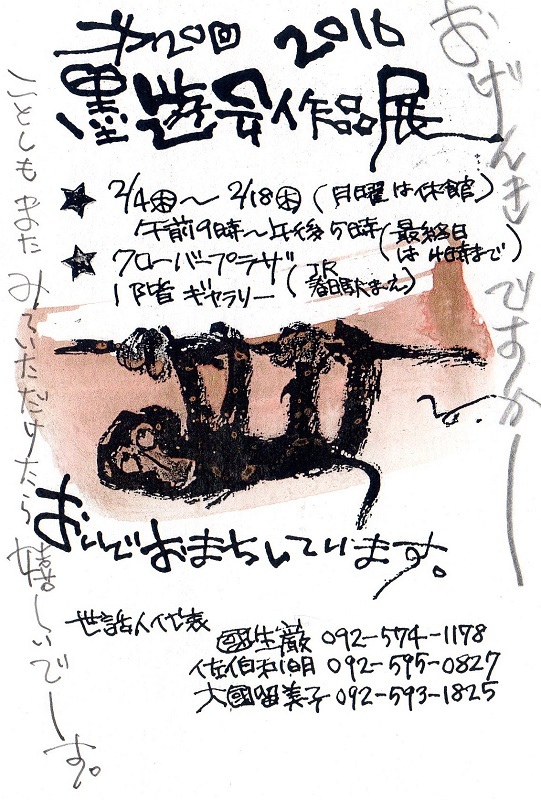 第20回 2016
墨遊会作品展
★ 2/4㊍～2/18㊍(月曜は休館)
午前9時～午後5時(最終日は4時まで)
★ クローバープラザ
1階 ギャラリー(JR春日駅まえ)
おいでおまちしています。
世話人代表
國生巌 092-574-1178
佐伯和明 092-595-0827
大國留美子 092-593-1825
おげんきですかー
ことしもまたみていただけたら嬉しいでーす。